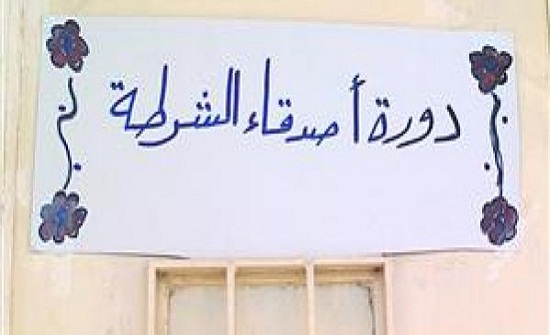 دورة أصدقاء الشرطة